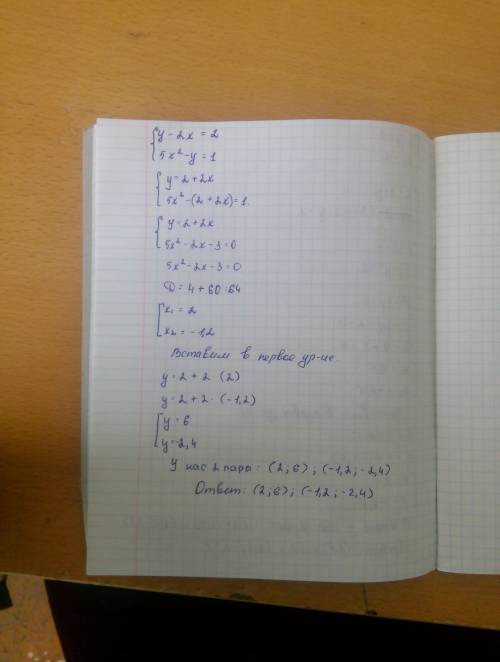 y - 2x = 2
5x² - y = 1
y = 2 + 2x
5x² - (2 + 2x) = 1
y = 2 + 2x
5x² - 2x - 3 = 0
5x² - 2x - 3 = 0
D = 4 + 60 = 64
x₁ = 2
x₂ = -1,2
Вставим в первое ур-ие
y = 2 + 2 · (2)
y = 2 + 2 · (-1,2)
y = 6
y = -2,4
У нас 2 пары: (2; 6); (-1,2; -2,4)
Ответ: (2; 6); (-1,2; -2,4)